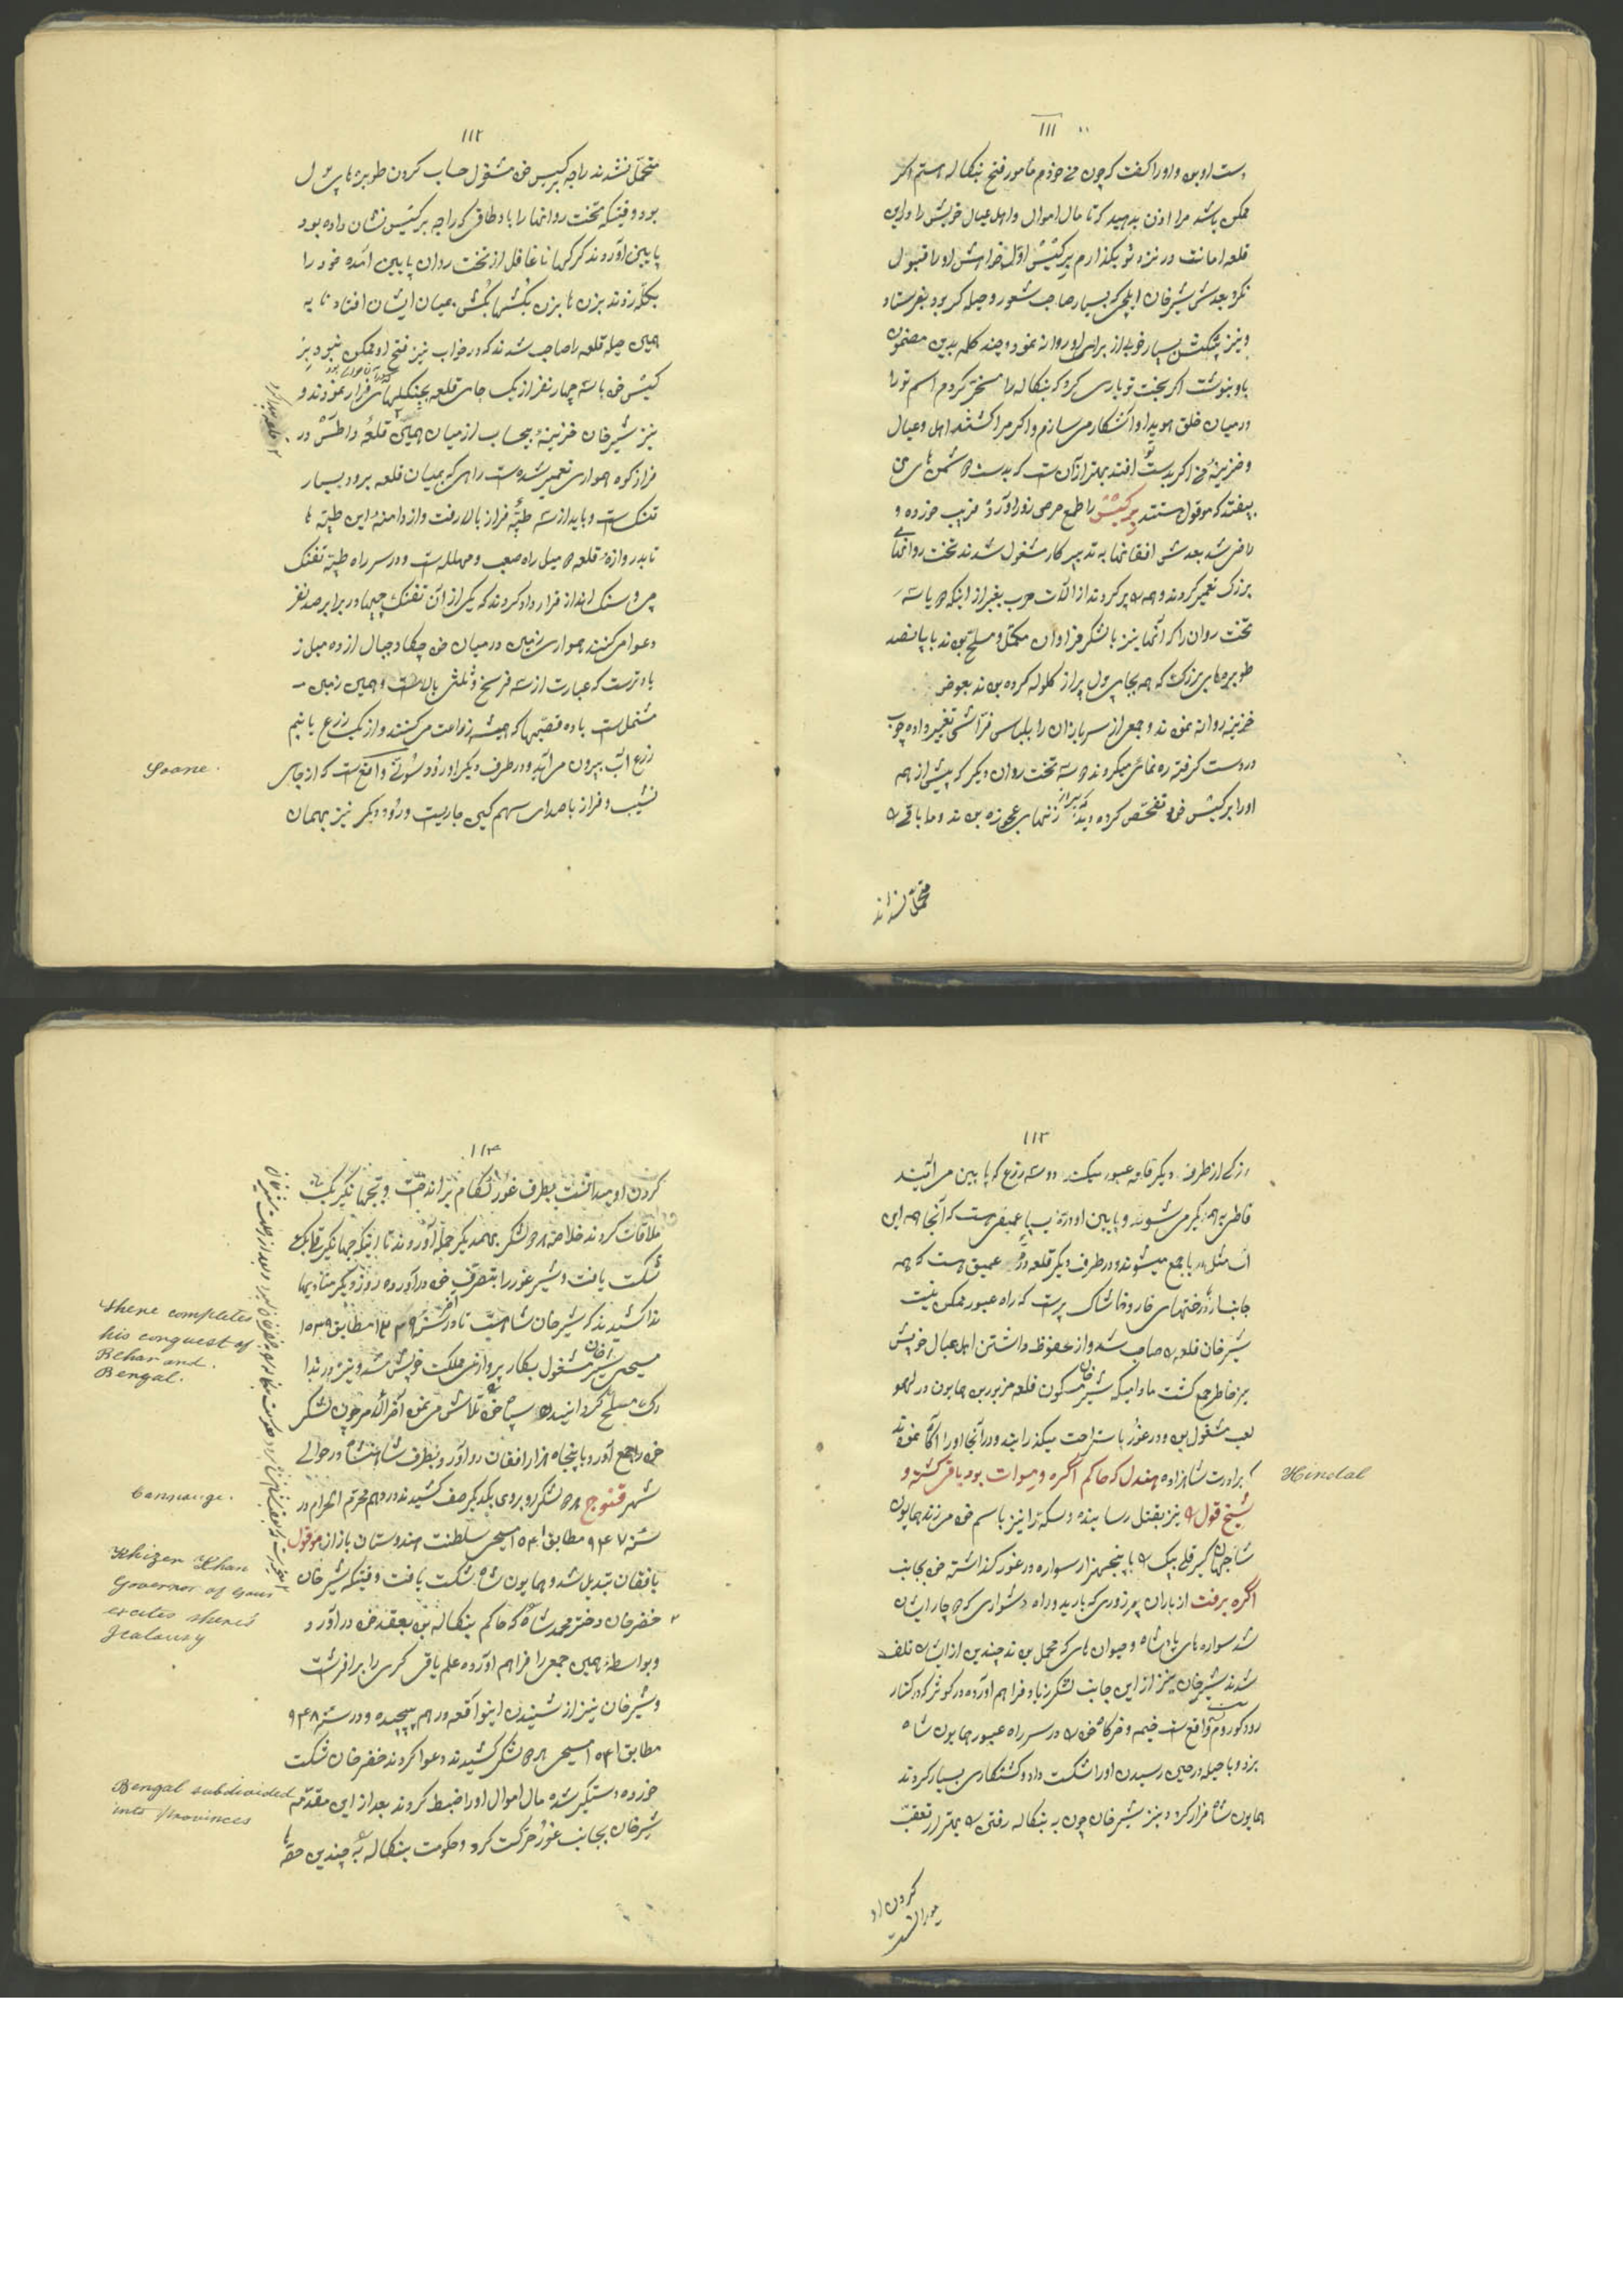 ١١١
دست او بود و او را گفت که چون من خودم مأمور فتح بنگاله هستم اگر
ممکن باشد مرا اذن بدهید که تا مال اموال و اهل عیال خویش را در این
قلعه امانت در نزد تو بگذارم برکیش اوّل خواهش او را قبول
نکرد بعدش شیرخان ایلچی که بسیار صاحب شعور و حیله گر بود بفرستاد
و نیز پیشکش بسیار خوب از برای او روانه نمود و چند کلمه بدین مضمون
باو بنوشت اگر بخت تو یاری کرد که بنگاله را مسخّر کردم اسم تو را
در میان خلق هویدا و آشکار میسازم و اگر مرا کشتند اهل و عیال
و خزینهٔ من اگر بدست تو افتد بهتر از آن است که بدست دشمن های من
بیفتد که موقول هستند برکیش را طمع حرص زور آورد فریب خورده و
راضی شد بعدش افغانها به تدبیر کار مشغول شدند تخت روانهای
بزرگ تعمیر کردند و همه را پر کردند از آلات حرب بغیر از اینکه دو یا سه
تخت روان را که آنها نیز با لشکر فراوان مکمّل و مسلّح بودند با پانصد
طوبره های بزرگ که همه بجای پول پر از گلوله کرده بودند بعوض
خزینه روانه نمودند و جمعی از سربازان را بلباس فرّاشی تغییر داده چوب
در دست گرفته ره نمائی میکردند دو سه تخت روان دیگر که پیش از همه
او را برکیش خود تفحّص کرده دید که پر از زنهای عجوزه بودند و ما باقی را
متحمّل نشدند
١١٢
متحمّل نشدند راجه برکیس خود مشغول حساب کردن طوبره های پول
بود وقتیکه تخت روانها را باوطاقی که راجه برکیس نشان داده بود
پایین آوردند گرگها ناغافل از تخت روان پایین آمده خود را
بگلّه زدند بزن بزن بکش بکش بمیان ایشان افتاد تا به
همین حیله قلعه را صاحب شدند که در خواب نیز فتح او ممکن نبود بر
کیش خود با سه چهار نفر از یک جای قلعه بجنگلهای فرار نمودند و
نیز شیرخان خزینهٔ بیحساب از میان همین قلعهٔ راطس در
فراز کوه همواری تعمیر شده است راهی که بمیان قلعه برود بسیار
تنگ است و باید از سه طپّه فراز بالا رفت و از دامنهٔ این طپّه ها
تا بدروازهٔ قلعه دو میل راه صعب و مهلک است و در سر راه طپّه تفنگ
چی و سنگ انداز قرار داد کردند که یکی از آن تفنگ چیها در برابر صد نفر
دعوا میکنند همواری زمین در میان خود چکاد جبال از ده میل ز
یادتر است که عبارت از سه فرسخ و ثلثی بالاست و همین زمین
مشتمل است با ده قصبّه ها که همیشه زراعت میکنند و از یک زرع یا نیم
زرع آب بیرون میآید و در طرف دیگر او رود شونة واقع است که از جای
نشیب و فراز با صدای سهم گین جاریست و رود دیگر نیز بهمان
Soane.
١١٣
بزرگی از طرف دیگر قلعه عبور میکند دو سه زرع که پایین میآیند
قاطی به همدیگر میشوند و پایین او درّهٔ بسیار عمیق است که آنجا همه این
آب مثل دریا جمع میشوند و در طرف دیگر قلعه درّهٔ عمیق است که همه
جابسار درختهای خار و خاشاک پر است که راه عبور ممکن نیست
شیرخان قلعه را صاحب شد و از محفوظ داشتن اهل عیال خویش
بر خاطر جمع گشت مادامیکه شیر خان مسکون قلعه مزبور بود همایون در لهو
لعب مشغول بود و در غور باستراحت میگذرانید و در آنجا او را آگاه نمودند
که برادرت شاهزاده هندل که حاکم اگره و میوات بود یاقی گشته و
شیخ قول را نیز بقتل رسانیده و سکه را نیز باسم خود میزند همایون
شاه جهانگیر قلی بیک را با پنجهزار سواره در غور گذاشته خود بجانب
اگره برفت از باران پر زوری که بارید و راه دشواری که دوچار ایشان
شد سواره های پادشاه و حیوان های که محمل بودند چندین از ایشان تلف
شدند شیرخان نیز از این جانب لشکر زیاد فراهم آورده در کوثر که در کنار
رود کوروم‌ناس واقع است خیمه و خرگاه خود را در سر راه عبور همایون شاه
بزد و با حیله در حین رسیدن او را شکست داد و کشتکاری بسیار کردند
همایون شاه فرار کرد و نیز شیرخان چون به بنگاله رفتن را بهتر از تعقّب
کردن او میدانست
Hindal
١١٤
کردن او میدانست بطرف غور لگام براندخت و بجهانگیر بیک
ملاقات کردند خلاصه هر دو لشکر بهمدیگر حمله آوردند تا اینکه جهانگیر قلی بیک
شکست یافت و شیر غور را بتصرّف خود در آورده روز دیگر منادیها
ندا کشیدند که شیرخان شاه است تا در آخر سنهٔ مطابق ١٥٣٩
مسیحی شیر خان مشغول بکار پردازی ملکت خویش شد و نیز در تدا
رک مسلّح گردانیدن سپاه خود تلاش مینمود آخر الامر چون لشکر
خود را جمع آورد با پنجاه هزار افغان رو آورد بطرف شاهنشاه در حوالی
شهر قنوج هر دو لشکر رو بروی یکدیگر صف کشیدند در دهم محرّم الحرام در
سنهٔ ٩٤٧ مطابق ١٥٤٠ مسیحی سلطنت هندوستان باز از موقول
بافغان تبدیل شد و همایون شاه شکست یافت وقتیکه شیرخان
خضرخان دختر محمد شاه که حاکم بنگاله بود بعقد خود در آورد و
و بواسطهٔ همین جمعی را فراهم آورده علم یاقی گری را برافرشت
و شیرخان نیز از شنیدن اینواقعه در هم پیچیده و در سنهٔ ٩٤٨
مطابق ١٥٤١ مسیحی هر دو لشکر کشیدند دعوا کردند خضرخان شکست
خورده دستگیر شده مال اموال او را ضبط کردند بعد از این مقدّمه
شیرخان بجانب غور حرکت کرد و حکومت بنگاله را به چندین حصّه
Shere completes
his conquest of
Behar and
Bengal.
Cannauge.
Khizer Khan
Governor of Gour
excites shere's
Jealousy
Bengal subdivided
into Provinces